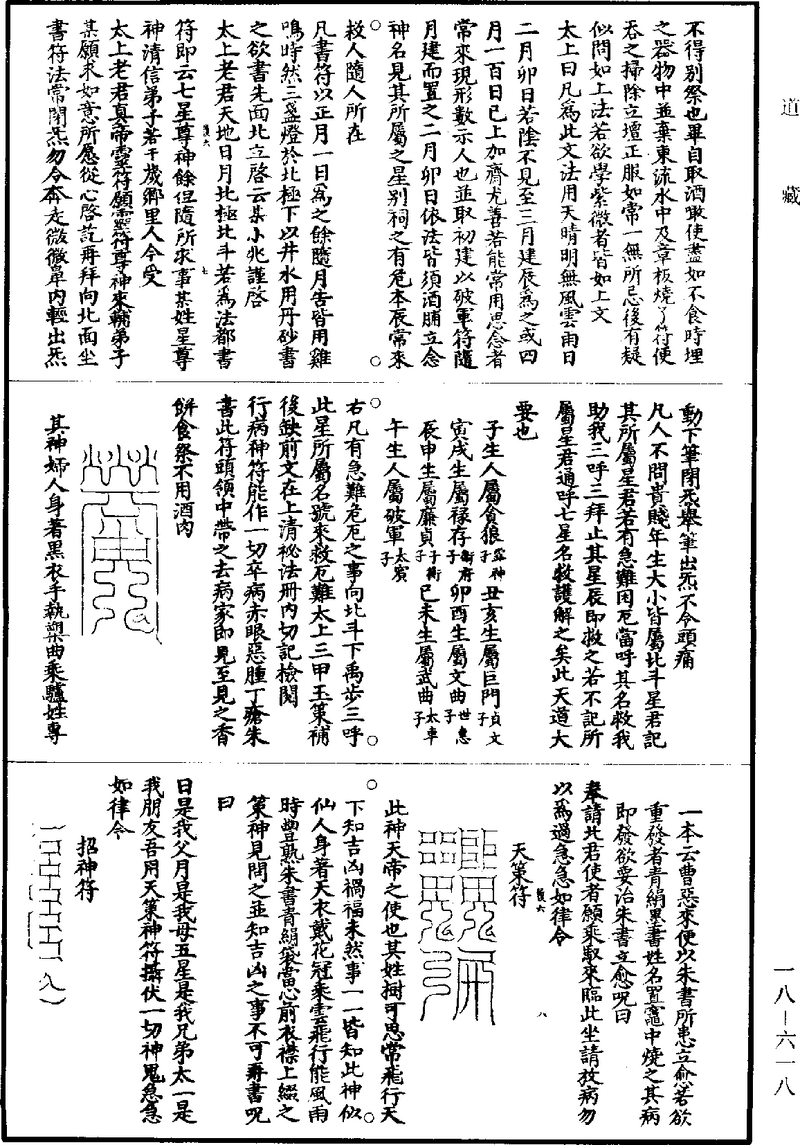 道藏
不得別祭也畢自取酒噉使盡如不食時埋
之器物中並棄東流水中及章板燒了符使
吞之掃除立壇正服如常一無所忌後有疑
似問如上法若欲學紫微者皆如上文
太上曰凡為此文法用天晴明無風雲雨日
二月卯日若陰不見至三月建辰為之或四
月一百日已上加齊尤善若能常用思念者
常來現形數示人也並取初建以破軍符隨
月建而置之二月卯日依法皆須酒脯立念
神名見其所屬之星別祠之有危本辰常來
救人隨人所在
凡書符以正月一日為之餘隨月吉皆用雞
鳴時然三盞燈於北極下以井水用丹砂書
之欲書先面北立啓云某小兆謹啓
太上老君天地日月北極北斗若為法都書
符即云七星尊神餘但隨所求事某姓星尊
神清信弟子若干歲鄉里人今受
太上老君真帝靈符願靈符尊神來輔弟子
某願求如意所愿從心啓訖再拜向北面坐
書符法常閉炁勿令奔走微微鼻内輕出炁
動下筆閉炁舉筆出炁不令頭痛
凡人不問貴賤年生大小皆屬北斗星君記
其所屬星君若有急難困厄當呼其名救我
助我三呼三拜止其星辰即救之若不記所
屬星君通呼七星名救護解之矣此天道大
要也
子生人屬貪狼希神子 丑亥生屬巨門貞文子
寅戌生屬祿存衝府子 卯酉生屬文曲世惠子
辰申生屬廉貞于衝子 巳未生屬武曲太車子
午生人屬破軍太賓子
右凡有急難危厄之事向北斗下禹步三呼
此星所屬名號來救厄難太上三甲玉策補
後缺前文在上清祕法册内切記檢閱
行病神符能作一切卒病赤眼惡腫丁瘡朱
書此符頭領中帶之去病家即見至見之香
餅食祭不用酒肉
其神婦人身著黑衣手執槊曲乘驢姓尊
一本云曹惡來便以朱書所患立愈若欲
重發者青絹墨書姓名置竈中燒之其病
即發欲要治朱書文愈呪曰
奉請北君使者願乘馭來臨此坐請放病勿
以為過急急如律令
天策符
此神天帝之使也其姓樹可思常飛行天
下知吉凶禍福未然事一一皆知此神似
仙人身著天衣戴花冠乘雲飛行能風雨
時豐熟朱書青絹袋當心前衣襟上綴之
策神見問之並知吉凶之事不可再書呪
曰
日是我父月是我母五星是我兄弟太一是
我朋友吾用天策神符攝伏一切神鬼急急
如律令
招神符
一八—六一八